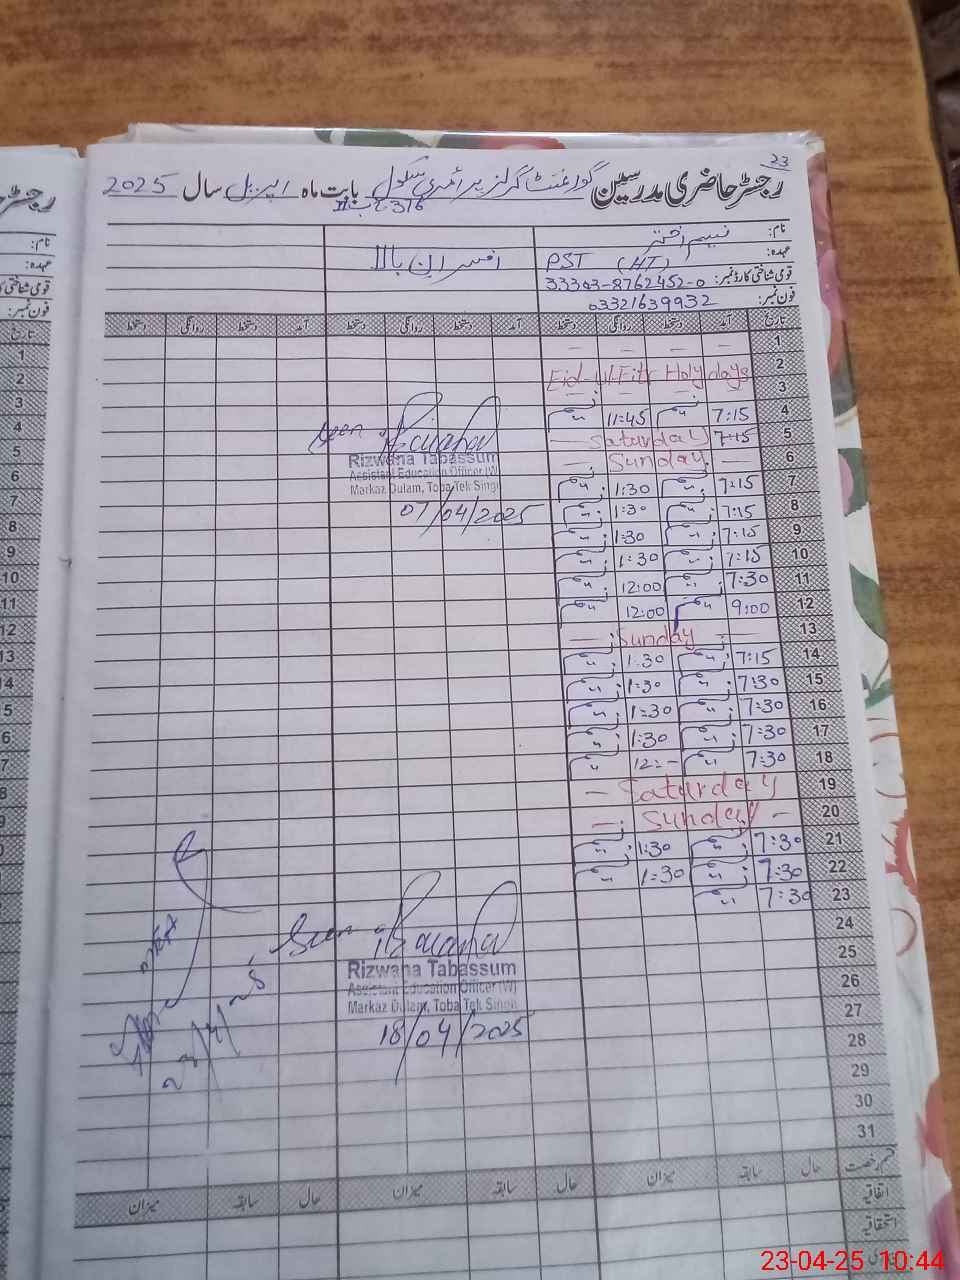 23
رجسٹر حاضری مدرسین گورنمنٹ گرلز پرائمری سکول بابت ماہ اپریل سال 2025
316 ج ب II
نام: نسیم اختر
عہدہ: PST (HT) افسران بالا
قومی شناختی کارڈ نمبر: 33303-8762452-0
فون نمبر: 03321639932
تاریخ آمد دستخط روانگی دستخط آمد دستخط روانگی دستخط آمد دستخط روانگی دستخط
1 — — — —
2 Eid-ul Fitr Holy days
3 — —
4 7:15 11:45
5 7:15 Saturday —
6 — Sunday —
7 7:15 1:30
8 7:15 1:30
9 7:15 1:30
10 7:15 1:30
11 7:30 12:00
12 9:00 12:00
13 — Sunday —
14 7:15 1:30
15 7:30 1:30
16 7:30 1:30
17 7:30 1:30
18 7:30 12:—
19 — Saturday
20 — Sunday —
21 7:30 1:30
22 7:30 1:30
23 7:30
24
25
26
27
28
29
30
31
Seen
Rizwana Tabassum
Assistant Education Officer (W)
Markaz Dulam, Toba Tek Singh
07/04/2025
Seen
Rizwana Tabassum
Assistant Education Officer (W)
Markaz Dulam, Toba Tek Singh
18/04/2025
قسم رخصت حال سابقہ میزان حال سابقہ میزان حال سابقہ میزان
اتفاقیہ
استحقاقیہ
رجسٹر
نام:
عہدہ:
قومی شناختی کا
فون نمبر:
تاریخ
1
2
3
4
5
6
7
8
9
10
11
12
13
14
23-04-25 10:44